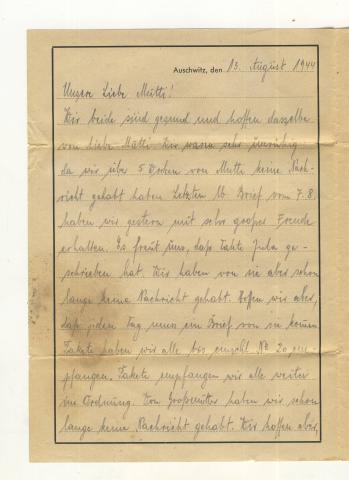 Auschwitz, den 13. August 1944
Unsere Liebe Mutti!
Wir beide sind gesund und hoffen dasselbe
von Liebe Mutti. Wir waren sehr unruhig
da wir über 5 Wochen von Mutti keine Nach-
richt gehabt haben. Letzten lb. Brief vom 7.8.
haben wir gestern mit sehr großes Freude
erhalten. Es freut uns, daß Tante Jula ge-
schrieben hat. Wir haben von sie aber schon
lange keine Nachricht gehabt. Hoffen wir aber,
daß jeden Tag muss ein Brief von sie kommen
Pakete haben wir alle bis einschl. No 20 em-
pfangen. Pakete empfangen wir alle weiter
im Ordnung. Von Großmutter haben wir schon
lange keine Nachricht gehabt. Wir hoffen aber,